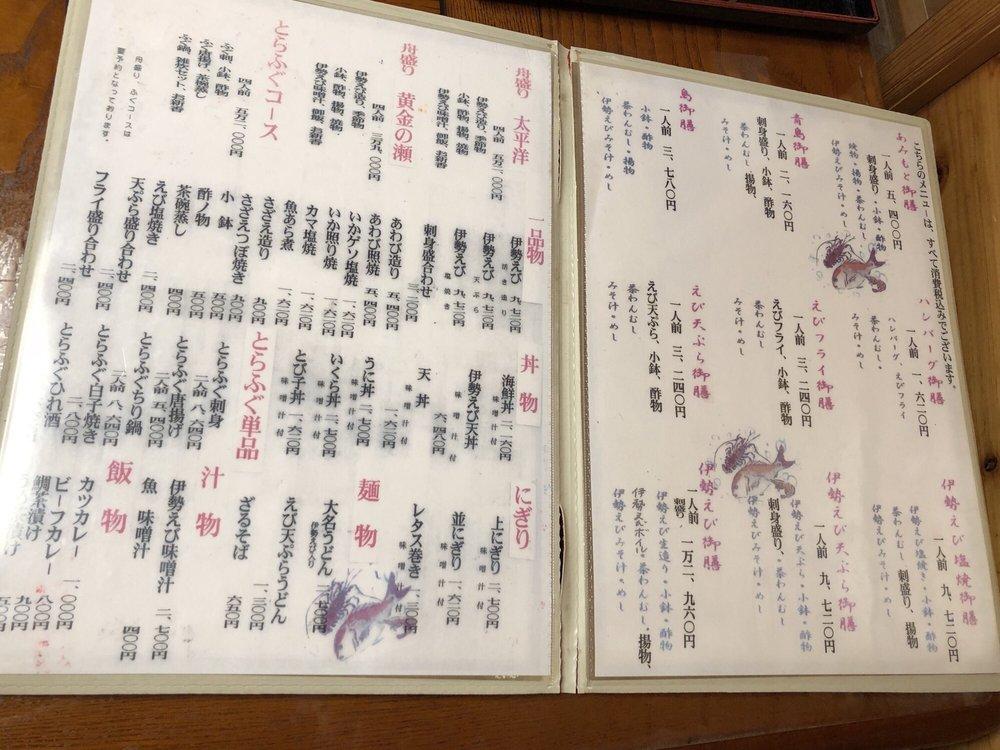 こちらのメニューは、すべて消費税込みでございます。
あみもと御膳
一人前 五、四〇〇円
刺身盛り・小鉢・酢物
焼物・揚物・茶わんむし
伊勢えびみそ汁・めし
青島御膳
一人前 二、一六〇円
刺身盛り、小鉢、酢物
茶わんむし、揚物、
みそ汁・めし
鳥御膳
一人前 三、七八〇円
小鉢・酢物
茶わんむし・揚物
伊勢えびみそ汁・めし
ハンバーグ御膳
一人前 一、六二〇円
ハンバーグ、えびフライ
茶わんむし、
みそ汁・めし
えびフライ御膳
一人前 三、二四〇円
えびフライ、小鉢、酢物
茶わんむし
みそ汁・めし
えび天ぷら御膳
一人前 三、二四〇円
えび天ぷら、小鉢、酢物
茶わんむし
みそ汁・めし
伊勢えび塩焼御膳
一人前 九、七二〇円
伊勢えび塩焼き・小鉢・酢物
茶わんむし 刺身盛り、揚物
伊勢えびみそ汁・めし
伊勢えび天ぷら御膳
一人前 九、七二〇円
伊勢えび天ぷら・小鉢・酢物
刺身盛り、茶わんむし
伊勢えびみそ汁・めし
伊勢えび御膳
一人前 一万二、九六〇円
伊勢えび生造り・小鉢・酢物
伊勢えびボイル・茶わんむし、揚物、
伊勢えびみそ汁・めし
舟盛り 太平洋
四人前 五万二、〇〇〇円
伊勢えび造り、季節物
小鉢、酢物、揚物、焼物、
伊勢えび味噌汁、御飯、お新香
舟盛り 黄金の瀬
四人前 三万九、〇〇〇円
伊勢えび造り、季節物
小鉢、酢物、揚物、焼物、
伊勢えび味噌汁、御飯、お新香
とらふぐコース
四人前 五万二、〇〇〇円
ふぐ刺、小鉢、酢物
ふぐ唐揚げ、茶碗蒸し
ふぐ鍋、雑炊セット、お新香
舟盛り、ふぐコースは
要予約となっております。
一品物
伊勢えび 九、七二〇円
活き造り
伊勢えび 九、七二〇円
天ぷら
伊勢えび 九、七二〇円
塩焼き
刺身盛合わせ
三、二四〇円
あわび造り 五、四〇〇円
あわび照焼 五、四〇〇円
いかゲソ塩焼
いか照り焼 一、六二〇円
カマ塩焼 一、六二〇円
魚あら煮 一、六二〇円
さざえ造り 九〇〇円
さざえつぼ焼き 九〇〇円
小鉢 五〇〇円
酢ノ物 五〇〇円
茶碗蒸し 四〇〇円
えび塩焼き 二、四〇〇円
天ぷら盛り合わせ 二、四〇〇円
フライ盛り合わせ 二、四〇〇円
丼物
海鮮丼 二、一六〇円
味噌汁付
伊勢えび天丼
六、四八〇円
味噌汁付
天丼 一、六二〇円
味噌汁付
うに丼 二、七〇〇円
味噌汁付
いくら丼 二、七〇〇円
味噌汁付
とび子丼 一、六二〇円
味噌汁付
とらふぐ単品
とらふぐ刺身
二人前 八、六四〇円
とらふぐ唐揚げ
二人前 五、四〇〇円
とらふぐちり鍋
二人前 八、六四〇円
とらふぐ白子焼き
とらふぐひれ酒
にぎり
上にぎり 二、七〇〇円
味噌汁付
並にぎり 一、六二〇円
味噌汁付
レタス巻き
味噌汁付
麺物
大名うどん
伊勢えび入り
えび天ぷらうどん
一、三〇〇円
ざるそば 六五〇円
汁物
伊勢えび味噌汁
二、七〇〇円
魚 味噌汁 四〇〇円
飯物
カツカレー 一、〇〇〇円
ビーフカレー 八〇〇円
鯛茶漬け 九〇〇円